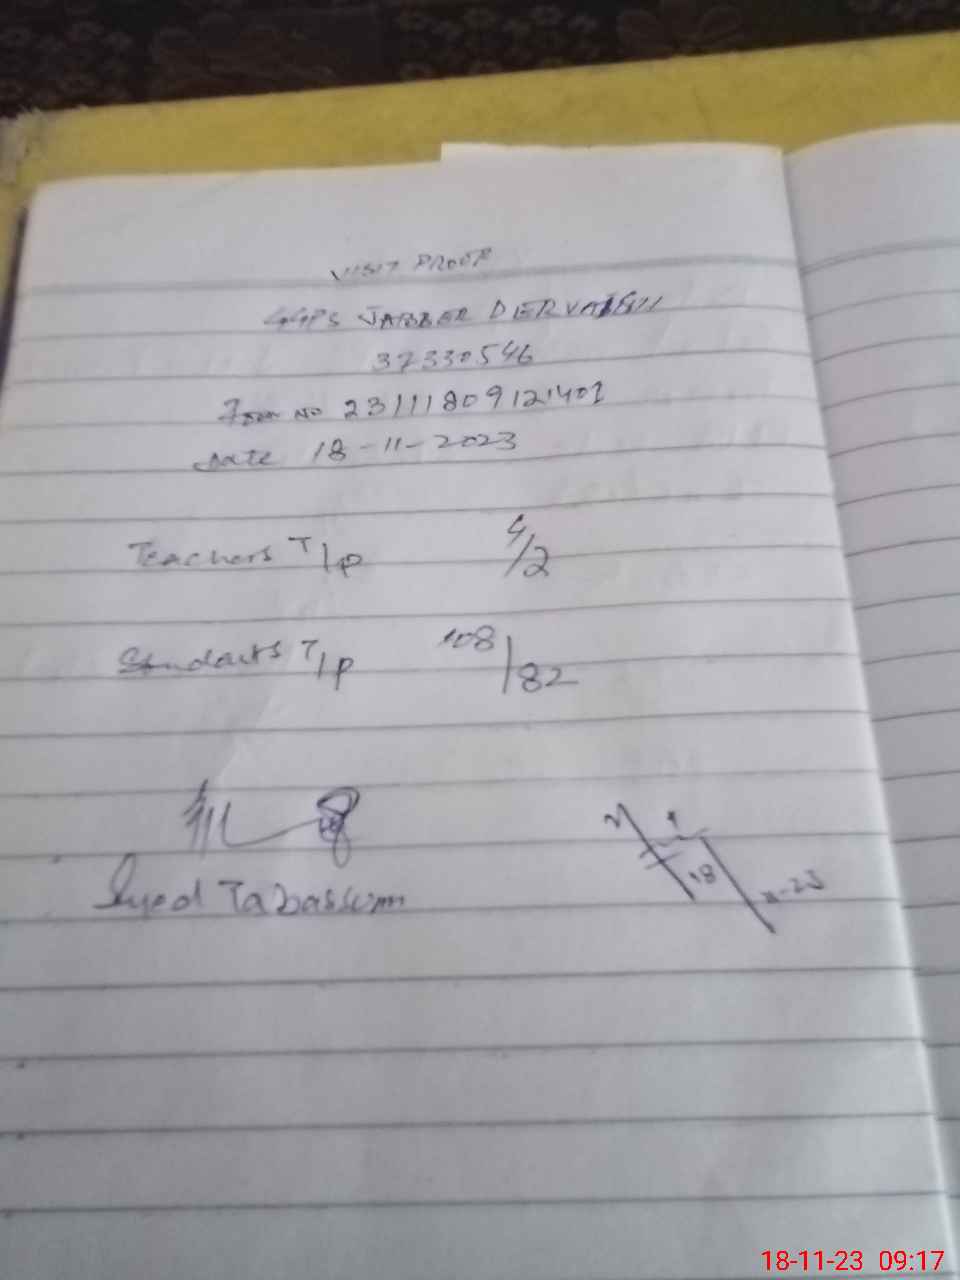 VISIT PROOF
GGPS JABBER DERVAISH
37330546
Form No 23111809121401
Date 18-11-2023
Teachers T/P 4/2
Students T/P 108/82
Syed Tabassum
18
18-11-23 09:17